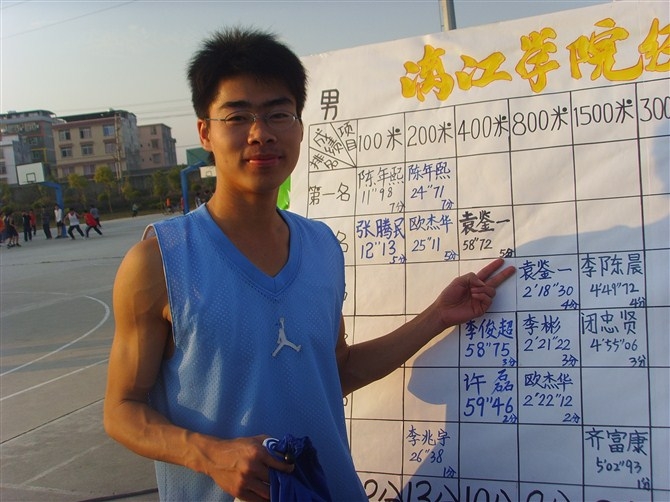 漓江学院
男
项目
成绩
100米 200米 400米 800米 1500米 300
第一名
陈年熙
11"98
7分
陈年熙
24"71
7分
名
张腾民
12"13
5分
欧杰华
25"11
5分
袁鉴一
58"72
5分
袁鉴一
2'18"30
4分
李陈晨
4'49"72
4分
李俊超
58"75
3分
李彬
2'21"22
3分
闭忠贤
4'55"06
3分
许磊
59"46
2分
欧杰华
2'22"12
2分
李兆宇
26"38
1分
齐富康
5'02"93
1分